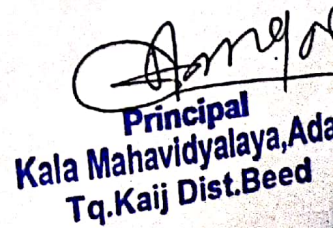 Principal
Kala Mahavidyalaya,Ada
Tq.Kaij Dist.Beed